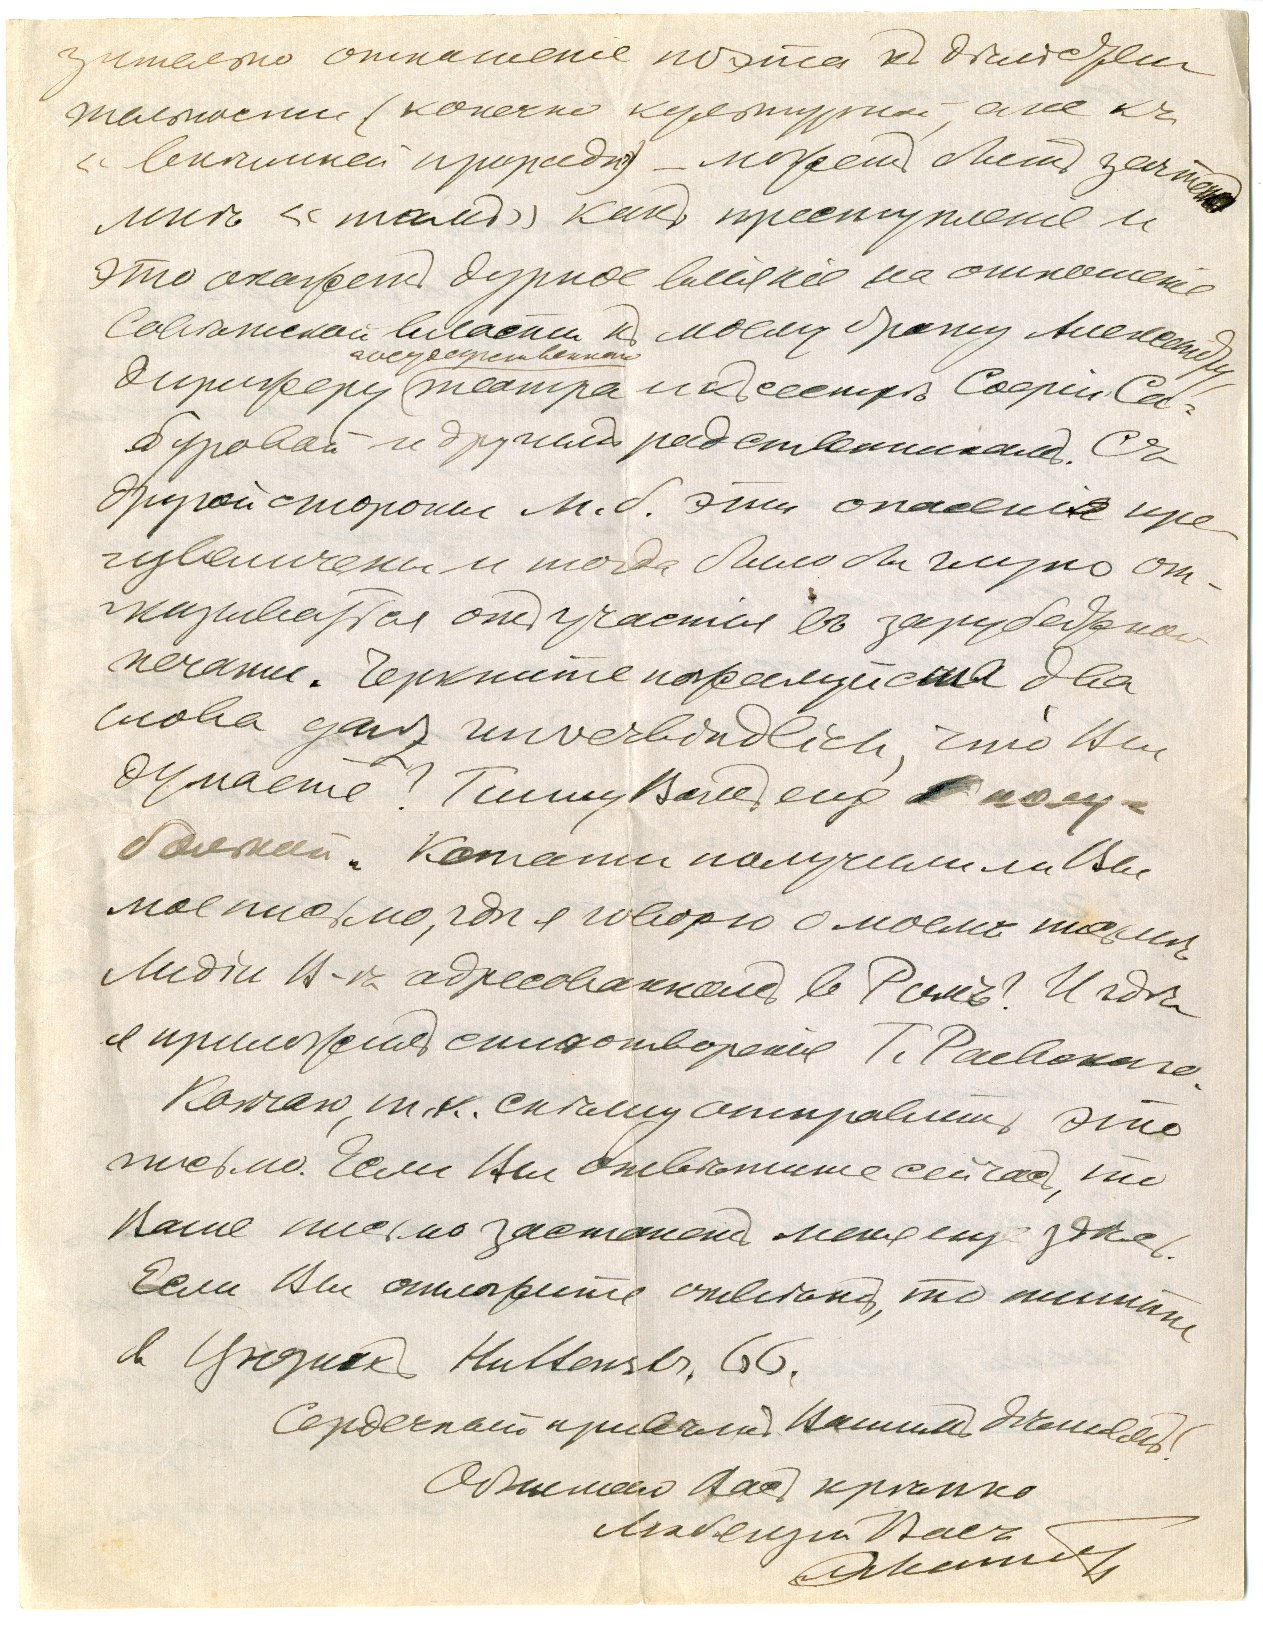 зительно отношеніе поэта къ дѣйстви
тельности (конечно культурной, а не къ
«внѣшней природѣ») – можетъ быть зачтено
мнѣ «тамъ» какъ преступленіе и
это окажетъ дурное вліяніе на отношеніе
Совѣтской власти къ моему брату Александру,
государственнаго
дирижеру театра и къ сестрѣ Софіи Са-
буровой и другимъ родственникамъ. Съ
другой стороны м.б. эти опасенія пре
увеличены и тогда было бы глупо от-
казываться отъ участія въ зарубежной
печати. Черкните пожалуйста два
слова ganz unverbindlich, что Вы
думаете? Пишу Вамъ еще полу-
больной. Кстати получили ли Вы
мое письмо, гдѣ я говорю о моемъ письмѣ
Лидіи В-нѣ адресованномъ въ Римъ? И гдѣ
я приложилъ стихотвореніе Г. Раевскаго.
Кончаю, т.к. спѣшу отправить это
письмо. Если Вы отвѣтите сейчасъ, то
Ваше письмо застанетъ меня еще здѣсь.
Если Вы отложите отвѣтъ, то пишите
въ Цюрихъ Huttenstr. 66.
Сердечный привѣтъ Вашимъ дѣтямъ!
Обнимаю Васъ крѣпко
Любящій Васъ